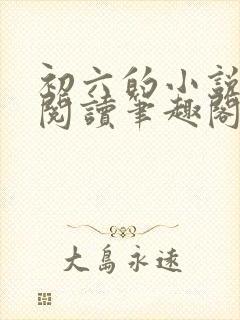 初六的小說
閱讀筆趣閣
大島永遠